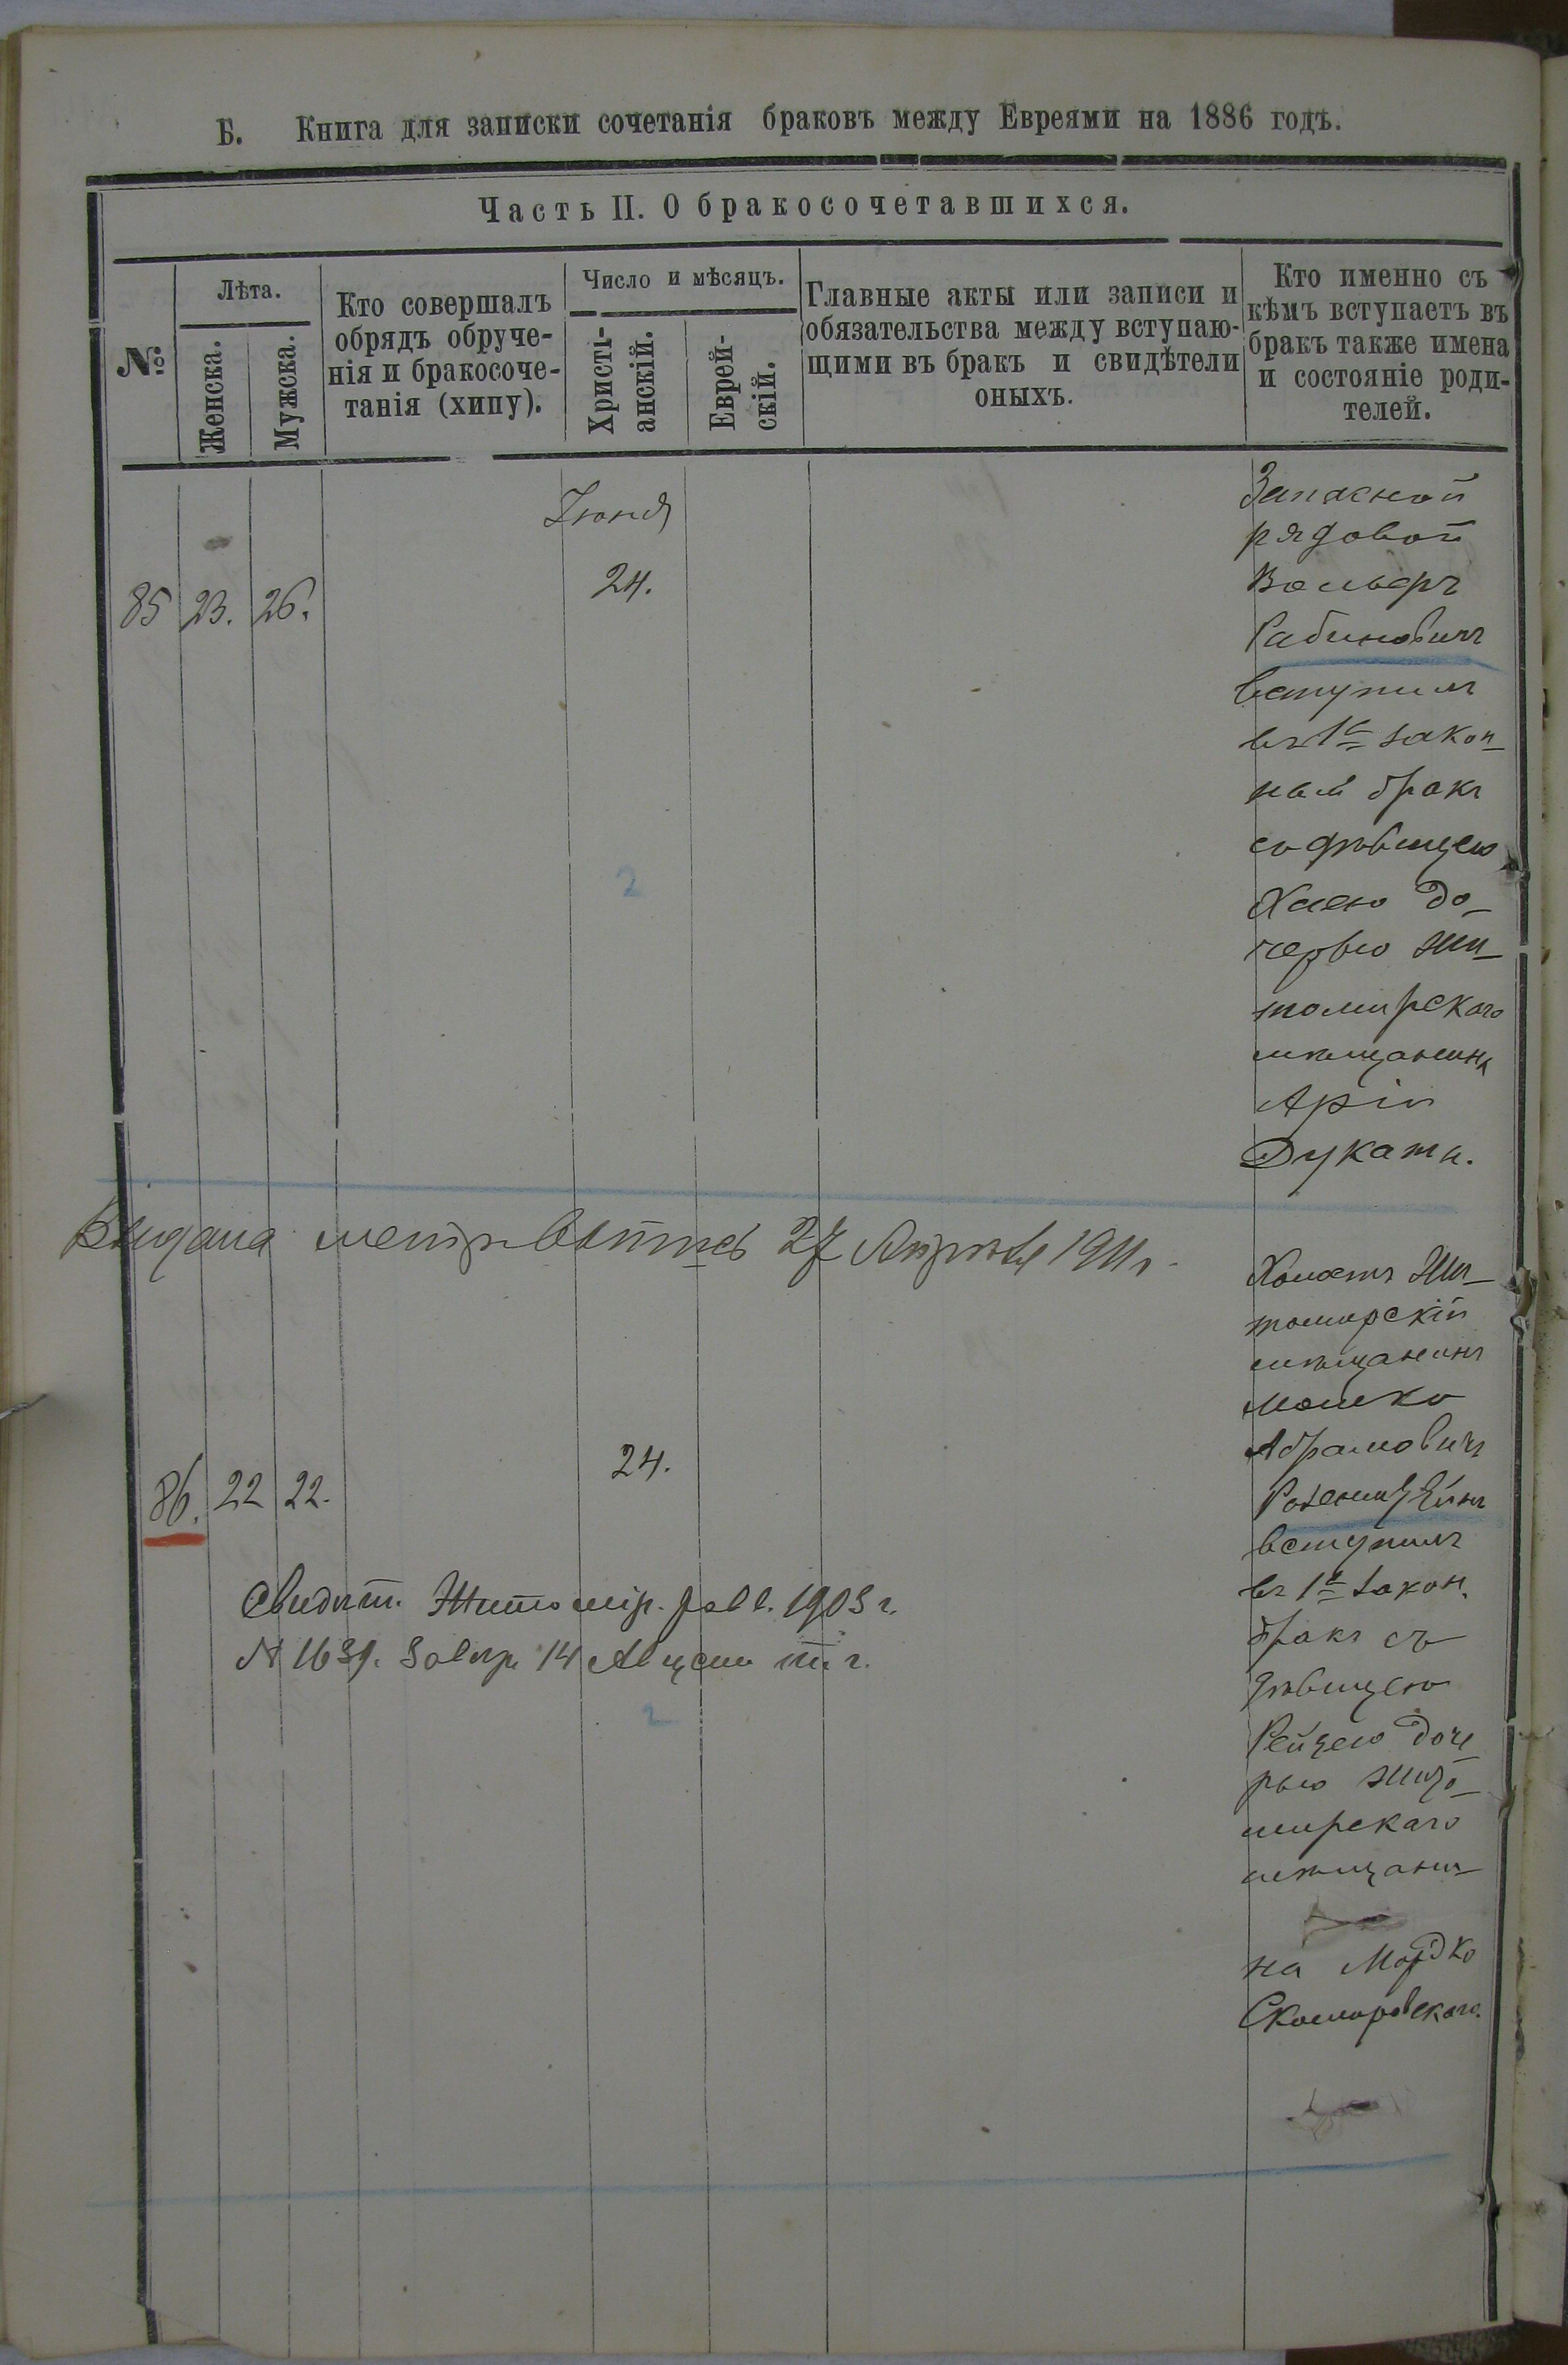 Б. Книга для записки сочетанія браковъ между Евреями на 1886 годъ.
Часть II. О бракосочетавшихся.
№
Лѣта.
Женска.
Мужска.
Кто совершалъ
обрядъ обруче-
нія и бракосоче-
танія (хипу).
Число и мѣсяцъ.
Христі-
анскій.
Еврей-
скій.
Главные акты или записи и
обязательства между вступаю-
щими въ бракъ и свидѣтели
оныхъ.
Кто именно съ
кѣмъ вступаетъ въ
бракъ также имена
и состояніе роди-
телей.
Іюня
85 23. 26. 24.
Запасной
рядовой
Вольфъ
Рабиновичъ
вступилъ
въ 1й закон-
ный бракъ
съ дѣвицею
Хаею до-
черью жи-
томирскаго
мѣщанина
Арія
Дуката.
2
Выдана метр. выпись 27 Апрѣля 1911 г.
86. 22 22. 24.
Холостъ Жи-
томирскій
мѣщанинъ
Мошко
Абрамовичъ
вступилъ
въ 1й закон.
бракъ съ
дѣвицею
Рейзею доче
рью жито-
мирскаго
мѣщани-
на Мордко
Скоморовскаго.
Свидѣт. Житомір. равв. 1903 г.
N 1639. 14 г.
2